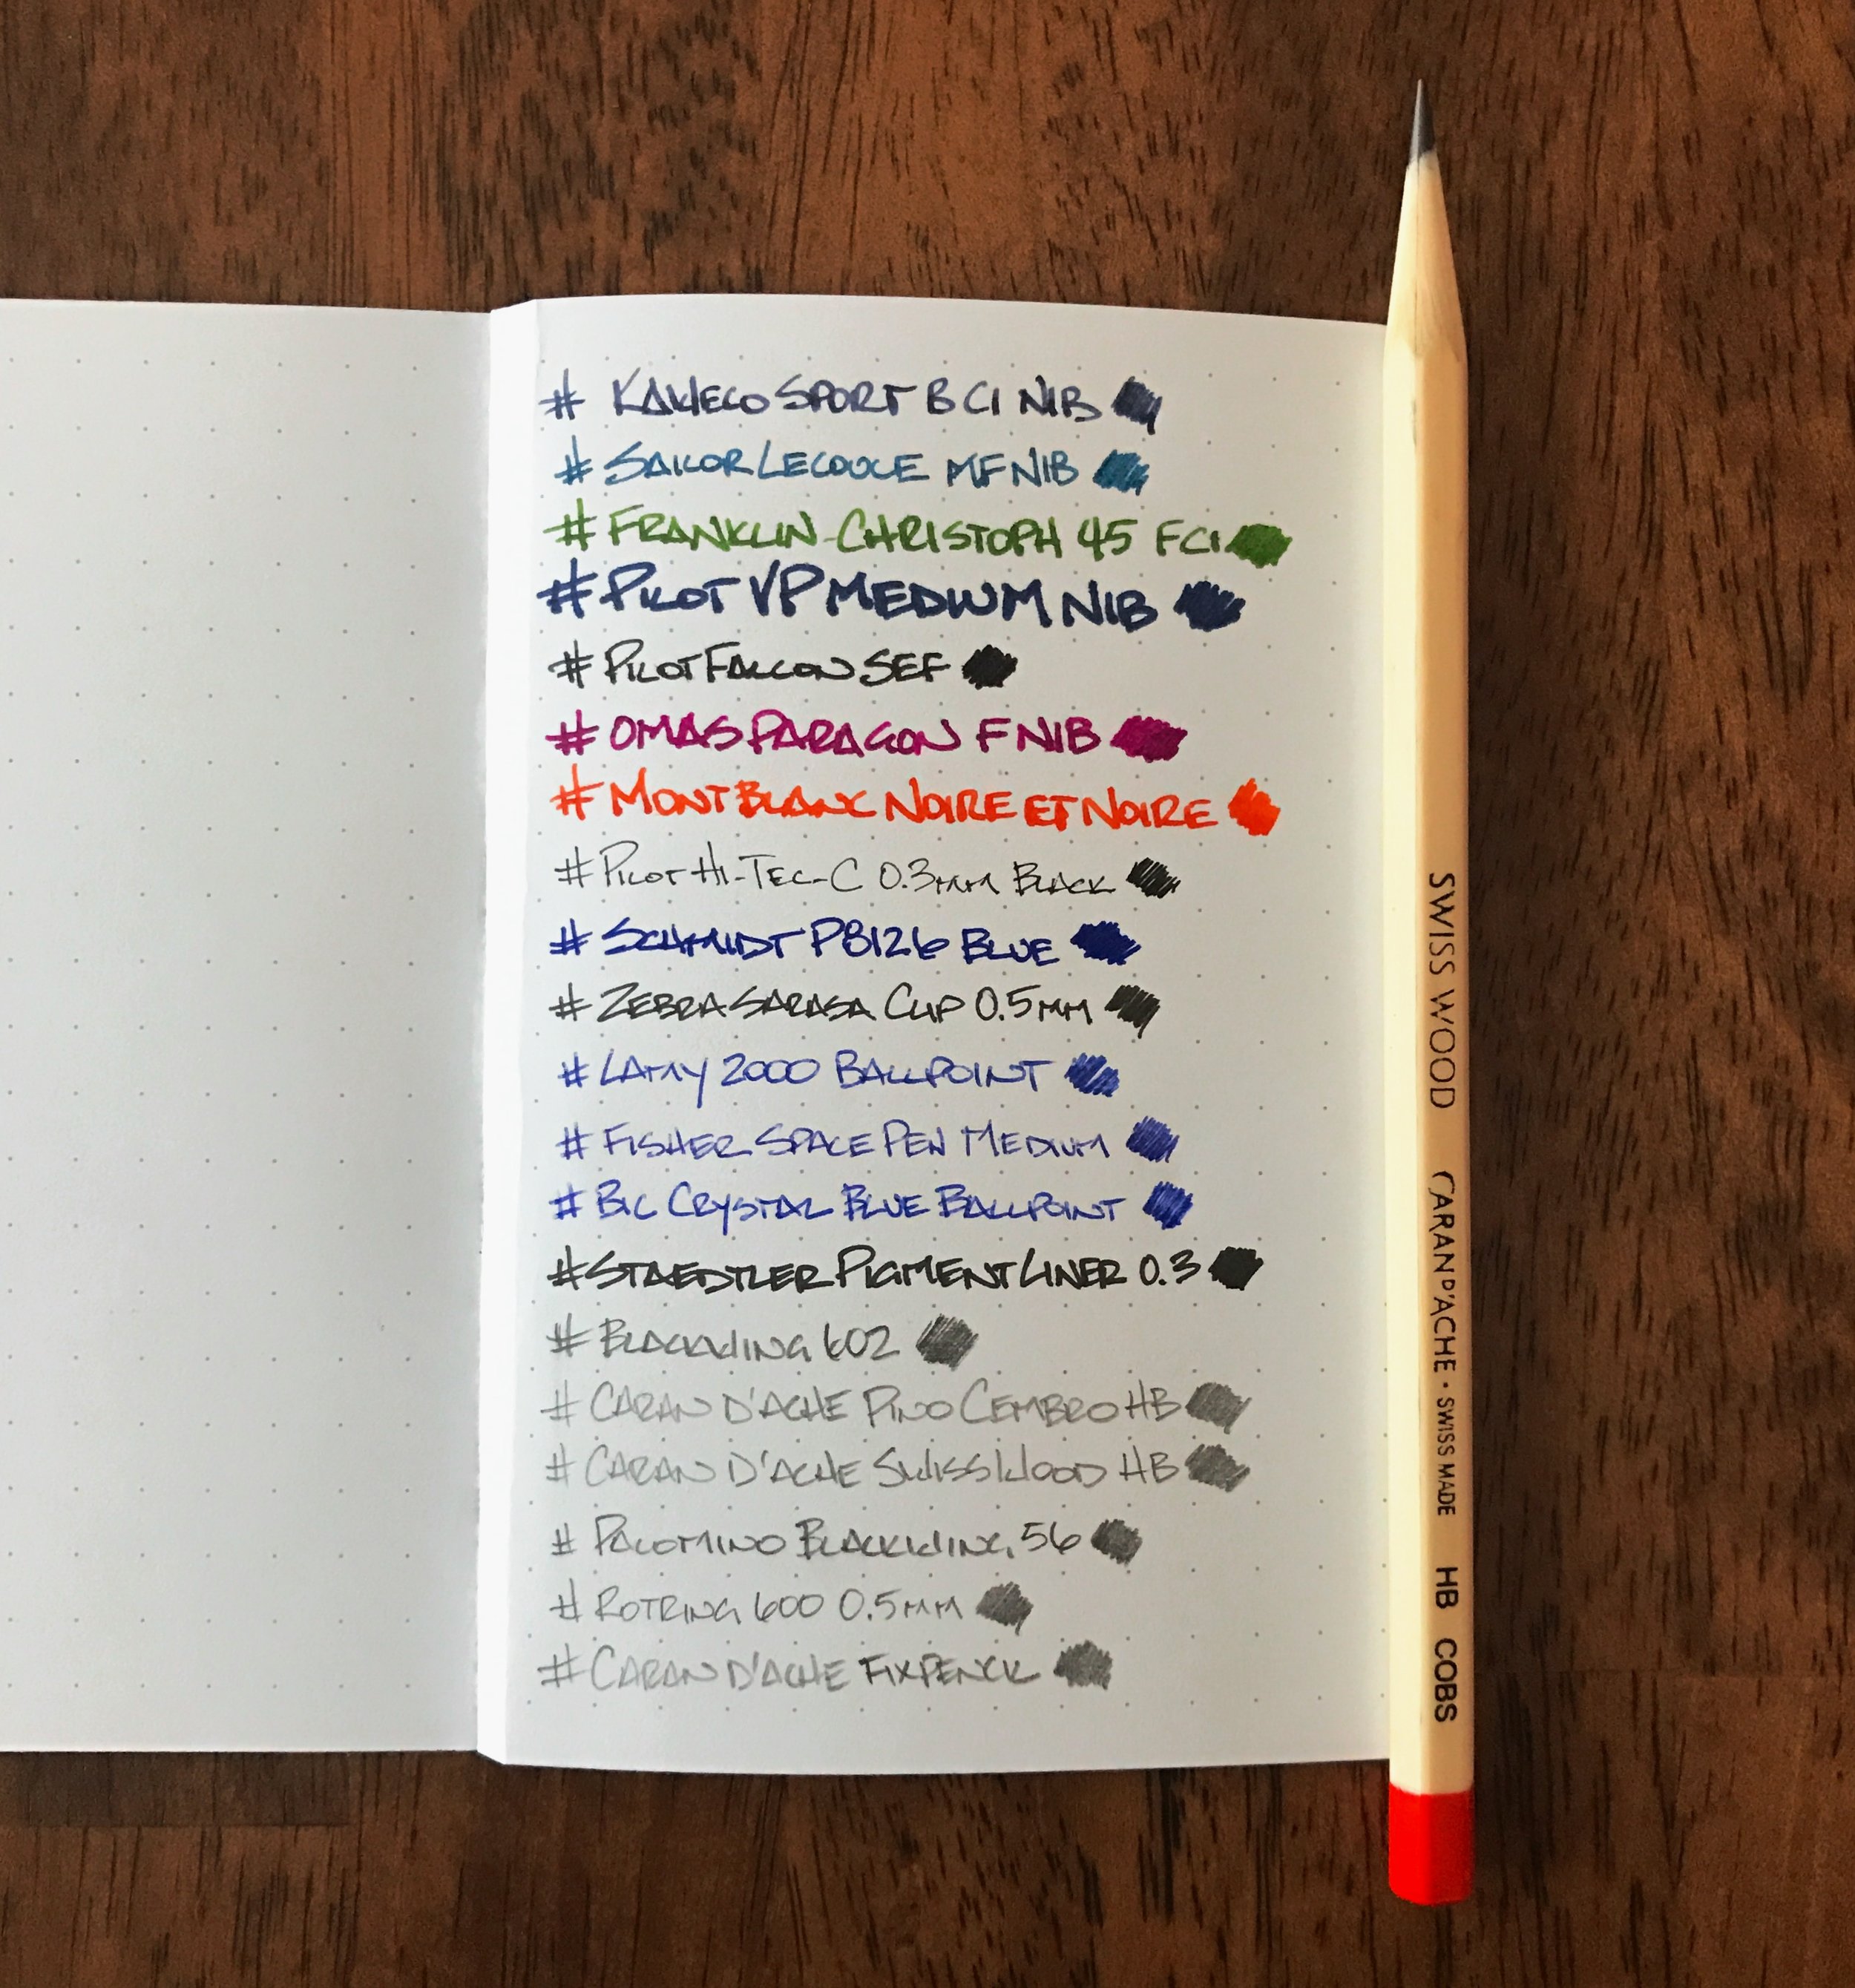 # KAWECO SPORT B CI NIB
# SAILOR LECOULE MF NIB
# FRANKLIN-CHRISTOPH 45 FCI
# PILOT VP MEDIUM NIB
# PILOT FALCON SEF
# OMAS PARAGON F NIB
# MONTBLANC NOIRE ET NOIRE
# PILOT HI-TEC-C 0.3mm BLACK
# SCHMIDT P8126 BLUE
# ZEBRA SARASA CLIP 0.5mm
# LAMY 2000 BALLPOINT
# FISHER SPACE PEN MEDIUM
# BIC CRYSTAL BLUE BALLPOINT
# STAEDTLER PIGMENT LINER 0.3
# BLACKWING 602
# CARAN D'ACHE PINO CEMBRO HB
# CARAN D'ACHE SWISS WOOD HB
# PALOMINO BLACKWING 56
# ROTRING 600 0.5mm
# CARAN D'ACHE FIXPENCIL
SWISS WOOD CARAN D'ACHE • SWISS MADE HB COBS